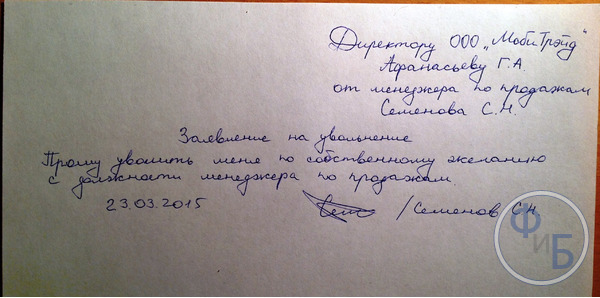 Директору ООО „МобиТрэйд"
Афанасьеву Г.А.
от менеджера по продажам
Семенова С.Н.
Заявление на увольнение
Прошу уволить меня по собственному желанию
с должности менеджера по продажам.
23.03.2015 /Семенов С.Н.
ФиБ